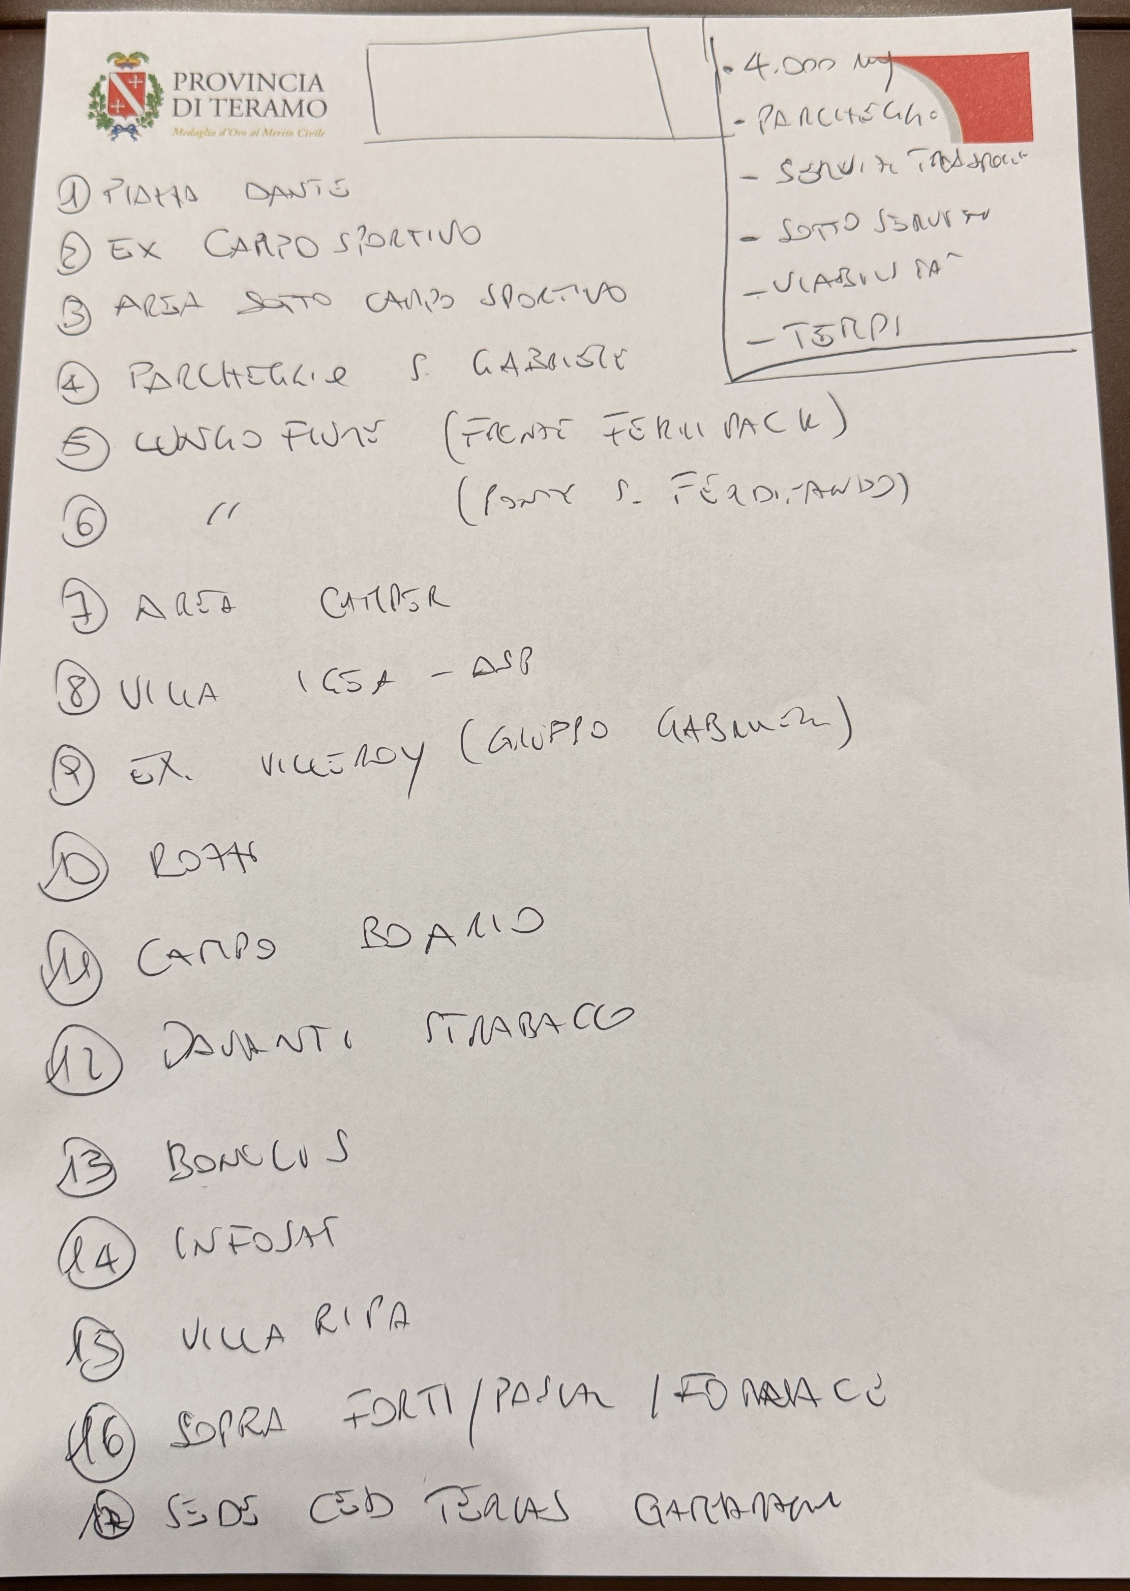 PROVINCIA
DI TERAMO
Medaglia d'Oro al Merito Civile
- 4.000 mq
- PARCHEGGIO
- SERVIZI TRASPORTO
- SOTTO SERVIZI
- VIABILITÀ
- TEMPI
1 PIAZZA DANTE
2 EX CAMPO SPORTIVO
3 AREA SOTTO CAMPO SPORTIVO
4 PARCHEGGIO S. GABRIELE
5 LUNGO FIUME (FRONTE FERRI PACK)
6 " (PONTE S. FERDINANDO)
7 AREA CAMPER
8 VILLA IGEA - ASP
9 EX. VILLEROY (GRUPPO GABRIELLI)
10 ROZZI
11 CAMPO BOARIO
12 DAVANTI STRABACCO
13 BONOLIS
14 INFOSAT
15 VILLA RIPA
16 SOPRA FORTI / / FORNACE
17 SEDE CED TERCAS